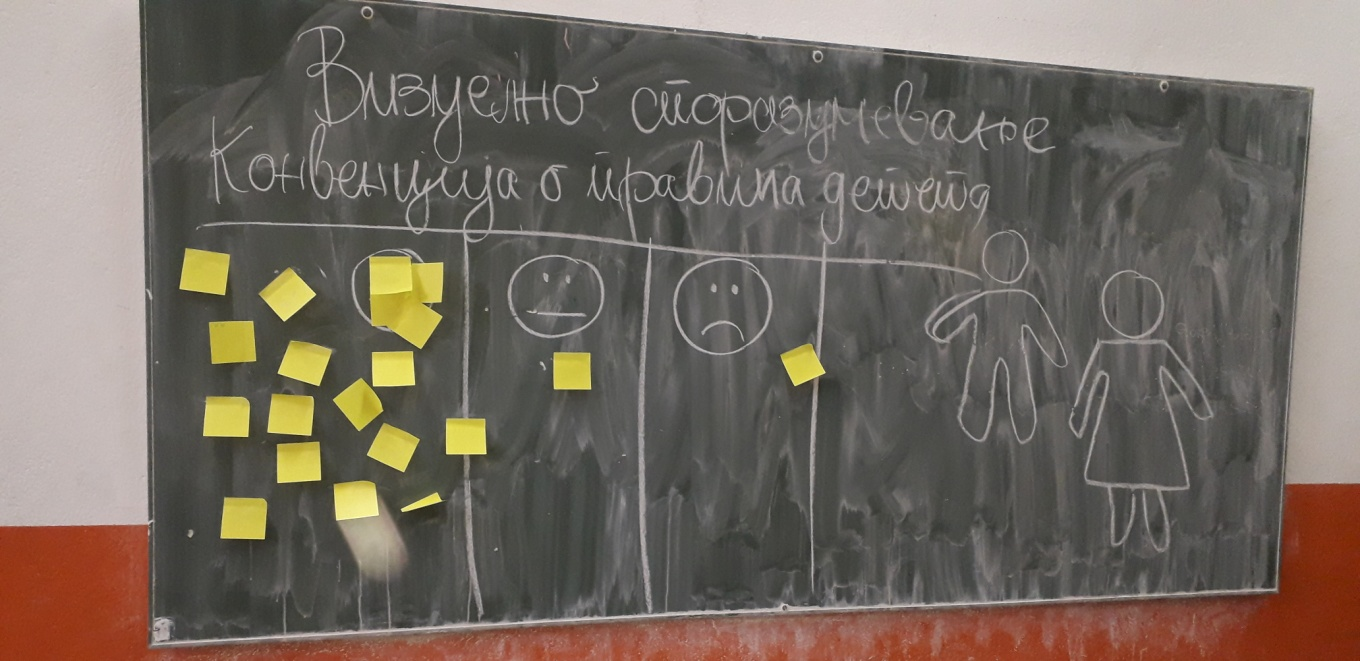 Визуелно споразумевање
Конвенција о правима детета